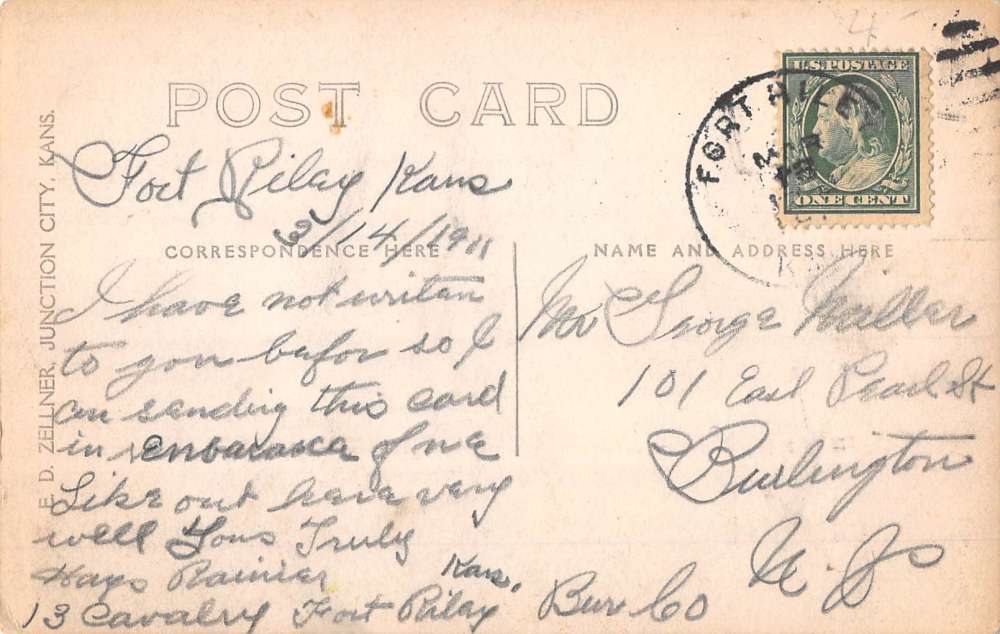 POST CARD
U.S. POSTAGE
ONE CENT
FORT RILEY
MAR
E. D. ZELLNER, JUNCTION CITY, KANS.
Fort Riley Kans
3/14/1911
CORRESPONDENCE HERE
I have not writen
to you befor so I
am sending this card
in
of me
Like out here very
well Yous Truly
Hays Rainier
Kans.
13 Cavalry Fort Riley
NAME AND ADDRESS HERE
Mr George
101 East Pearl St
Burlington
N. J.
Bur Co
4